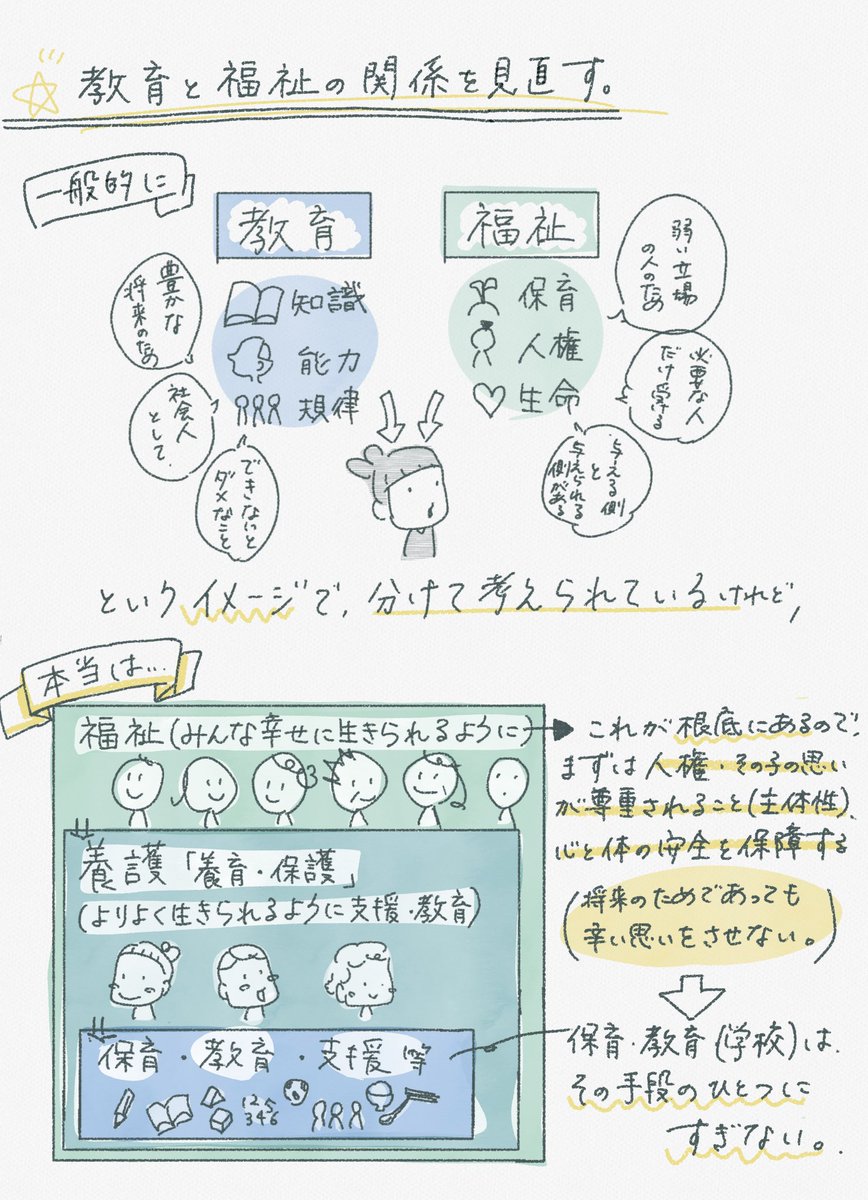 教育と福祉の関係を見直す。
一般的に
教育
知識
能力
規律
豊かな
将来のため
社会人
として、
できないと
ダメなこと
福祉
保育
人権
生命
弱い立場
の人のため
必要な人
だけ受ける
与える側
と
与えられる
側がある
というイメージで、分けて考えられているけれど、
本当は…
福祉(みんな幸せに生きられるように)
養護「養育・保護」
(よりよく生きられるように支援・教育)
保育・教育・支援等
123
3456
これが根底にあるので、
まずは人権・その子の思い
が尊重されること(主体性)、
心と体の安全を保障する
(将来のためであっても
辛い思いをさせない。)
保育・教育(学校)は、
その手段のひとつに
すぎない。